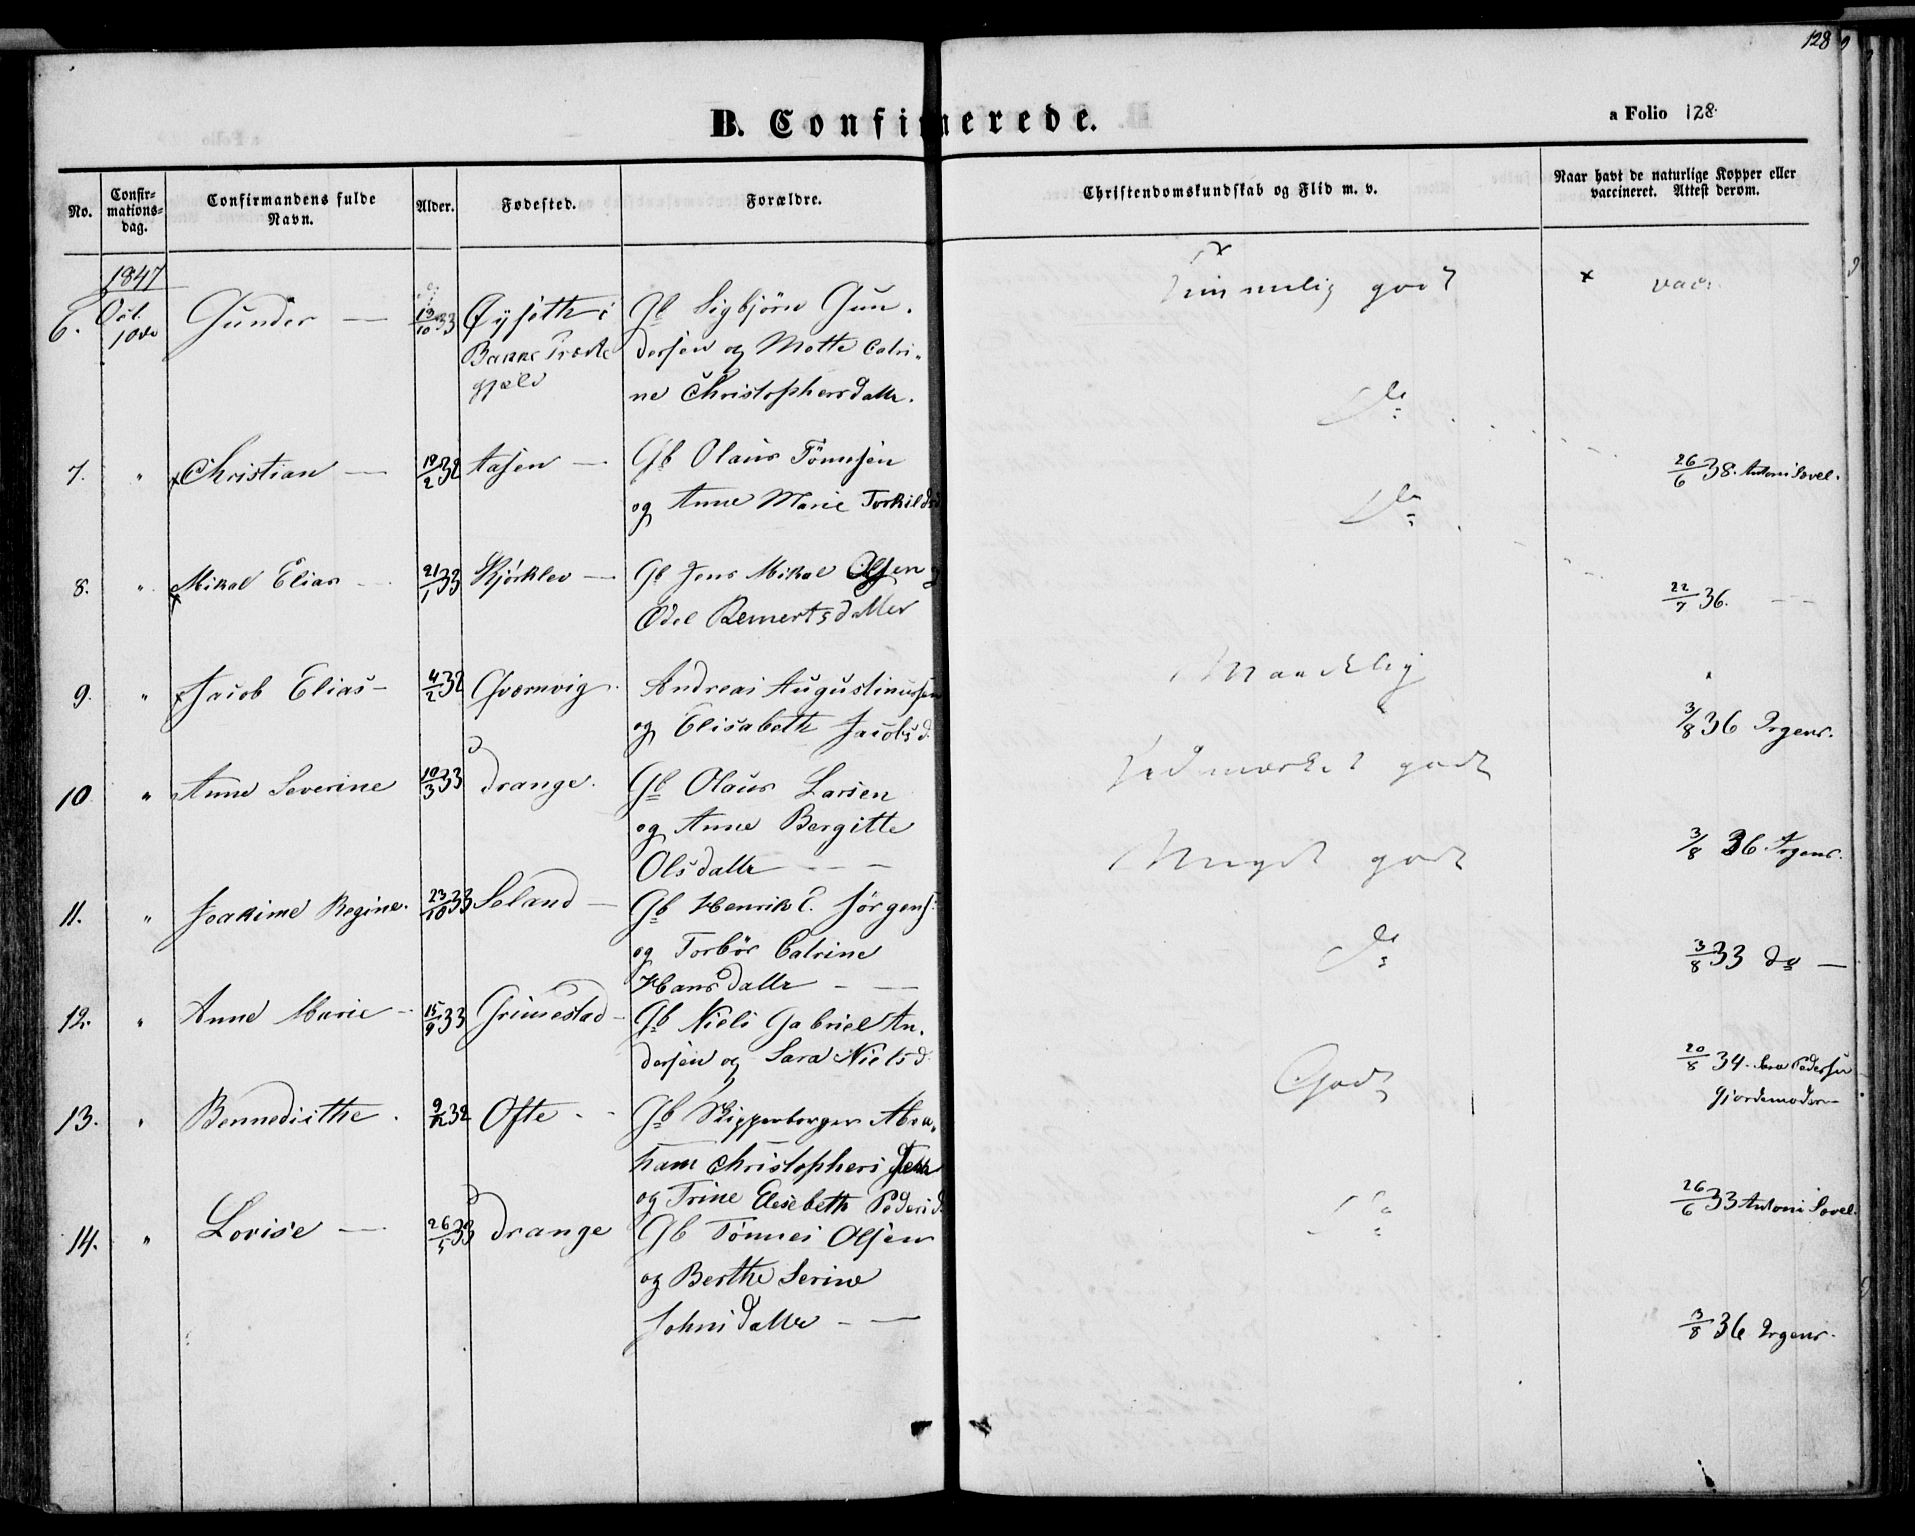 128
B. Confirmerede.
a Folio 128.
No.
Confir-
mations-
dag.
Confirmandens fulde
Navn.
Alder.
Fødested.
Forældre.
Christendomskundskab og Flid m. v.
Naar havt de naturlige Kopper eller
vaccineret. Attest derom.
1847
6. Oct. 10de Gunder — 13/10 33 Øysæth i Gb Sigbjørn Gun-
Bakke Præste dersen og Mette Catri-
gjeld ne Christophersdattr.
Temmelig godt
x vac.
7. " x Christian — 19/2 32 Aasen — Gb Olaus Tønnesen
og Anne Marie Torkildsd
Do
26/6 38. Antoni Sovel.
8. " x Mikal Elias — 21/1 33 Kjørklev — Gb Jens Mikal Olsen og
Odel Remertsdatter
Do
22/7 36. — —
9. " x Jacob Elias — 4/2 32 Qvernvig. Andreas Augustinussen
og Elisabeth Jacobsd.
Maadelig
3/8 36 Irgens.
10 " Anne Severine 10/3 33 Drange. Gb Olaus Larsen
og Anne Bergitte
Olsdattr — —
Udmærket godt
3/8 36 Irgens.
11. " Joakime Regine. 23/10 33 Seland — Gb Henrik E. Jørgens.
og Torbør Catrine
Hansdattr — —
Meget godt
3/8 33 do —
12. " Anne Marie — 15/9 33 Grimestad — Gb Niels Gabriel An-
dersen og Sara Nielsd.
Do
20/8 34. Sara Pedersen
Gjordemoder —
13. " Bennedicthe. 9/12 32 Ofte — Gb Skipperborger Abra-
ham Christophersen
og Trine Elesebeth Pedersd.
Godt
26/6 33 Antoni Sovel.
14. " Lovise — 26/5 33 Drange Gb Tønnes Olsen
og Berthe Serine
Johnsdattr — —
Do
3/8 36 Irgens.